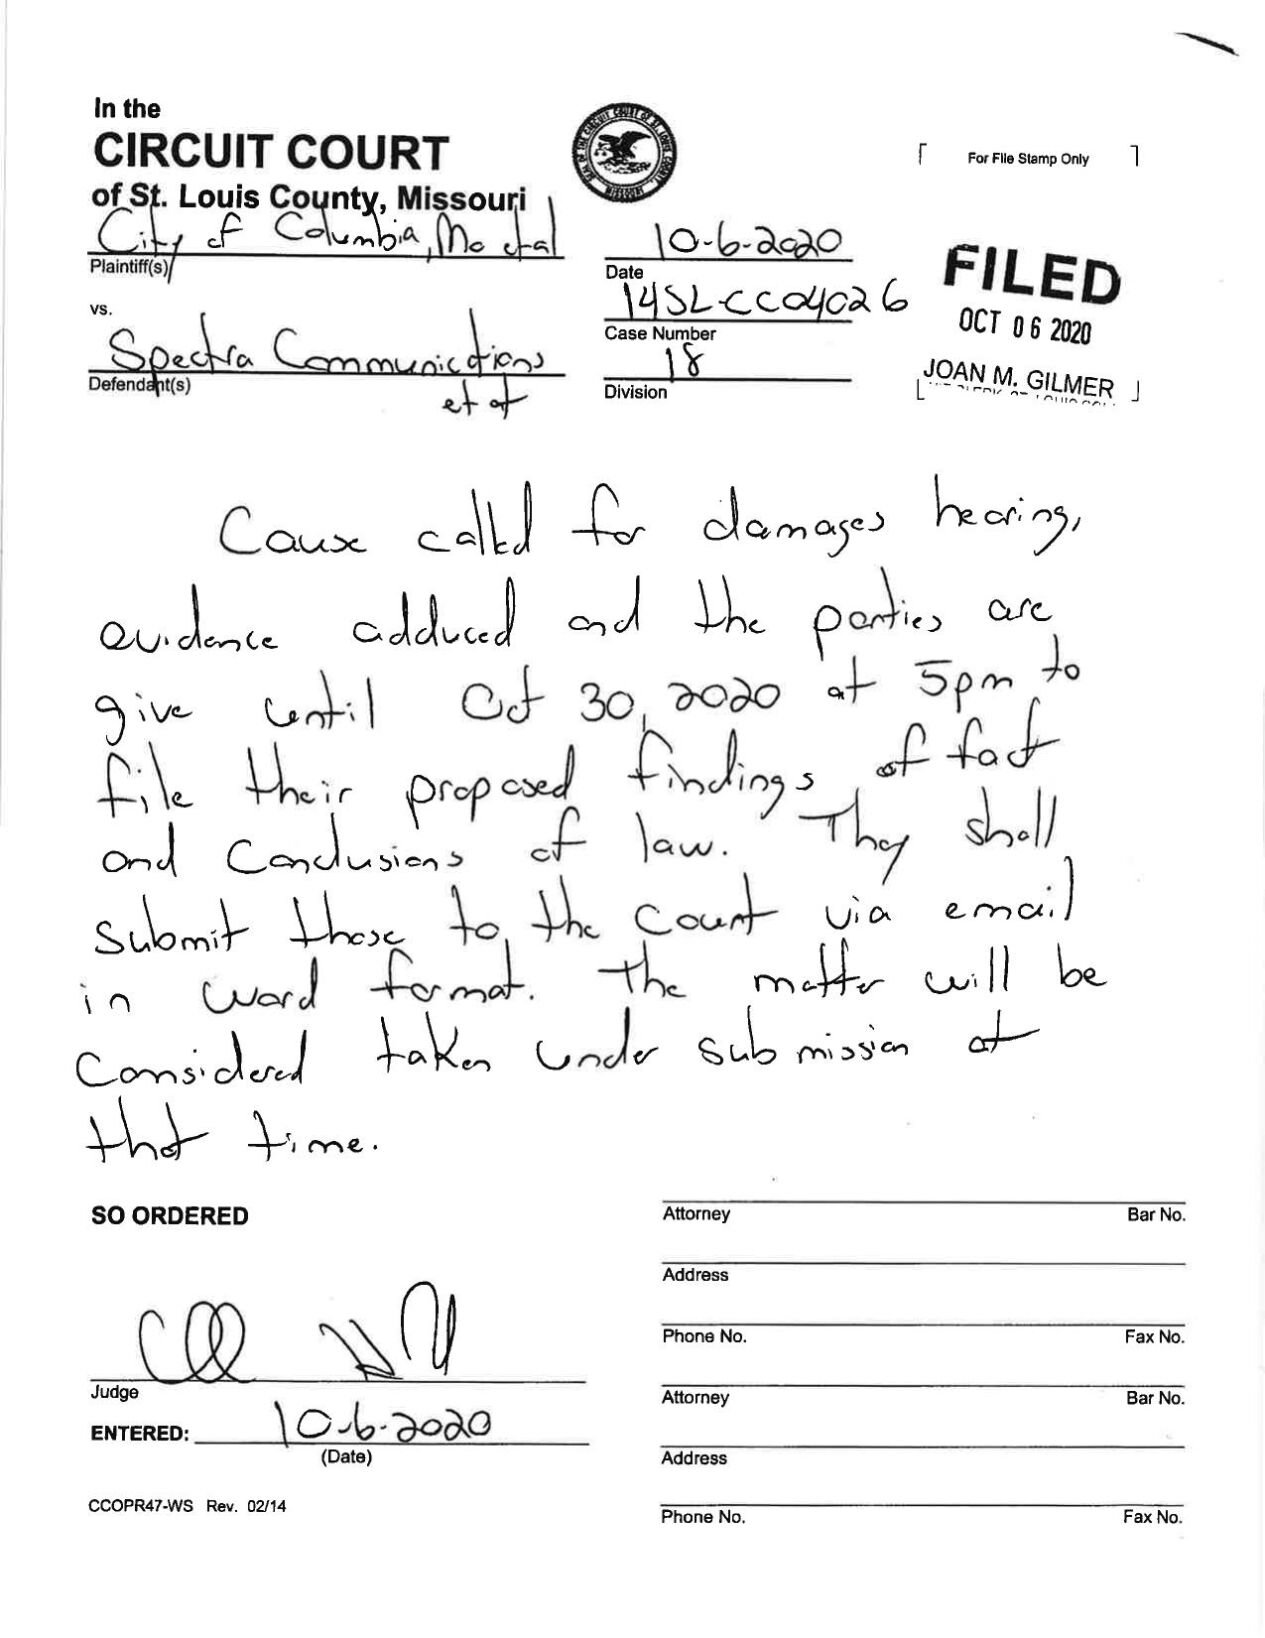 In the
CIRCUIT COURT
of St. Louis County, Missouri
For File Stamp Only
City of Columbia, Mo et al
Plaintiff(s)
vs.
Spectra Communications
et al
Defendant(s)
10-6-2020
Date
14SL-CC04026
Case Number
18
Division
FILED
OCT 06 2020
JOAN M. GILMER
Cause called for damages hearing,
evidence adduced and the parties are
give until Oct 30, 2020 at 5pm to
file their proposed findings of fact
and Conclusions of law. They shall
submit these to the Court via email
in word format. The matter will be
Considered taken under submission at
that time.
SO ORDERED
Judge
ENTERED: 10-6-2020
(Date)
CCOPR47-WS Rev. 02/14
Attorney Bar No.
Address
Phone No. Fax No.
Attorney Bar No.
Address
Phone No. Fax No.